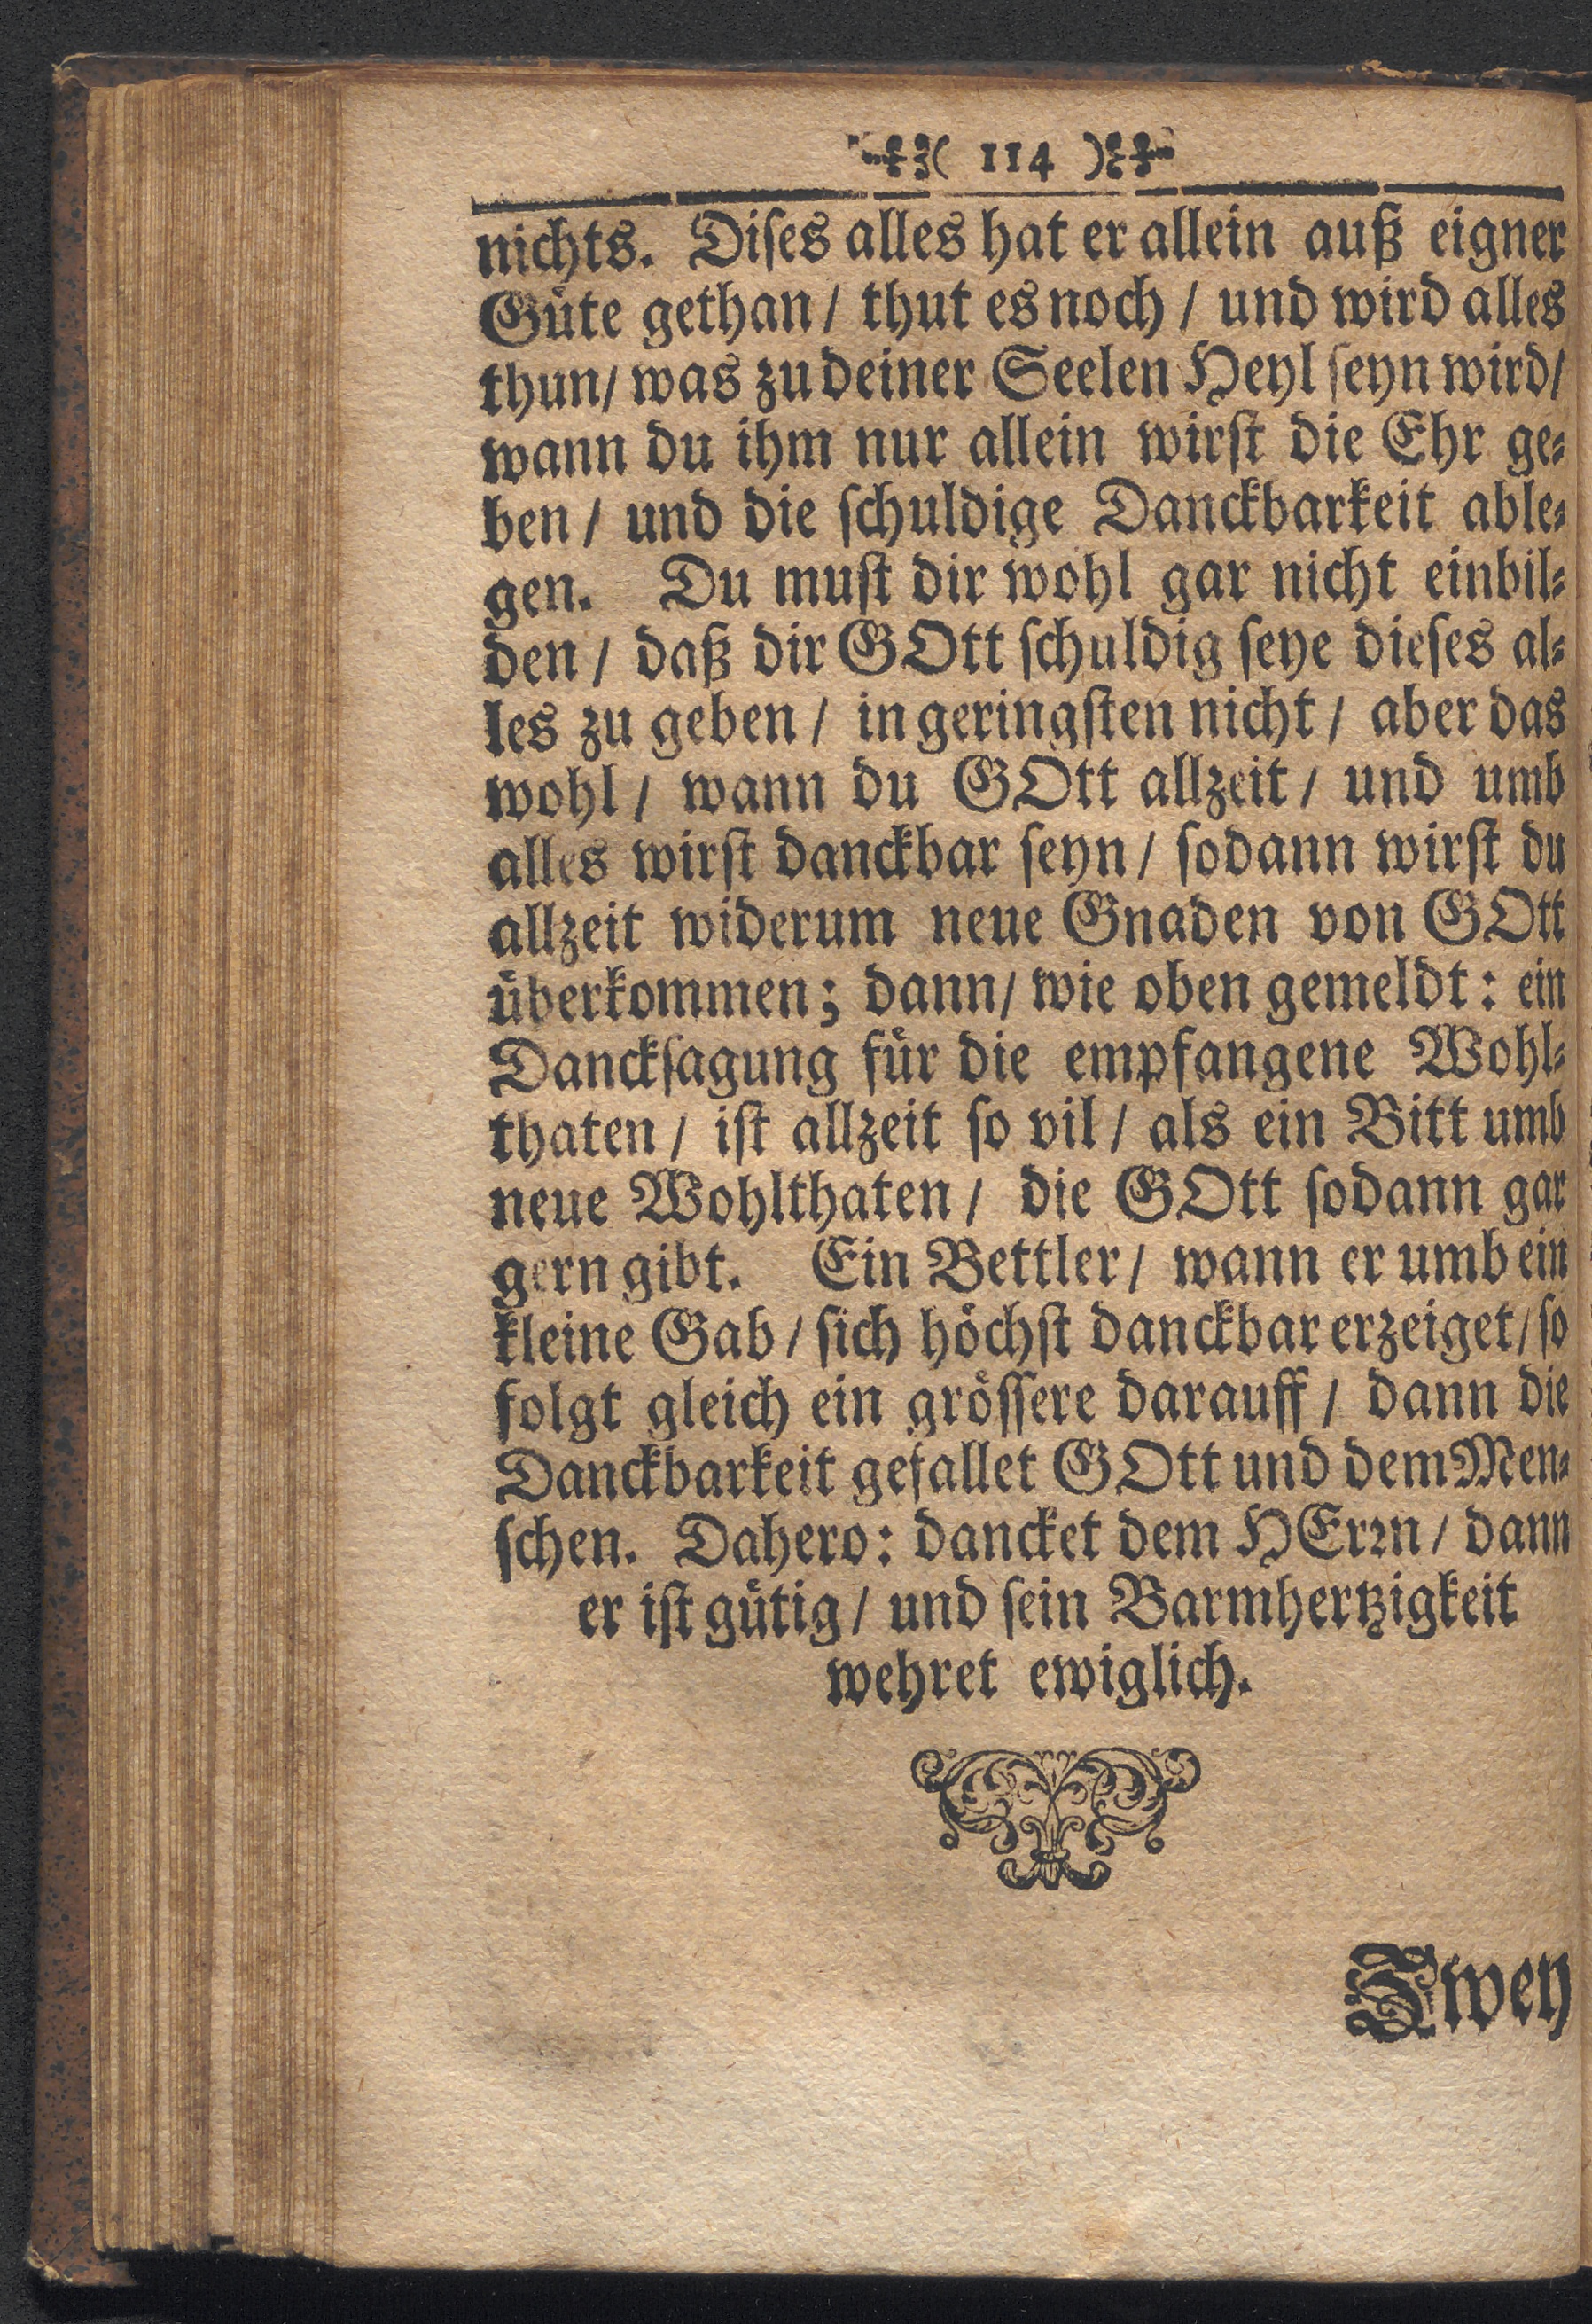 ( 114 )
nichts. Diſes alles hat er allein auß eigner
Güte gethan / thut es noch / und wird alles
thun / was zu deiner Seelen Heyl ſeyn wird /
wann du ihm nur allein wirſt die Ehr ge⸗
ben / und die ſchuldige Danckbarkeit able⸗
gen. Du muſt dir wohl gar nicht einbil⸗
den / daß dir GOtt ſchuldig ſeye dieſes al⸗
les zu geben / in geringſten nicht / aber das
wohl / wann du GOtt allzeit / und umb
alles wirſt danckbar ſeyn / ſodann wirſt du
allzeit widerum neue Gnaden von GOtt
überkommen; dann / wie oben gemeldt: ein
Danckſagung für die empfangene Wohl⸗
thaten / iſt allzeit ſo vil / als ein Bitt umb
neue Wohlthaten / die GOtt ſodann gar
gern gibt. Ein Bettler / wann er umb ein
kleine Gab / ſich höchſt danckbar erzeiget / ſo
folgt gleich ein gröſſere darauff / dann die
Danckbarkeit gefallet GOtt und dem Men⸗
ſchen. Dahero: dancket dem HErꝛn / dann
er iſt gütig / und ſein Barmhertzigkeit
wehret ewiglich.
Zwey